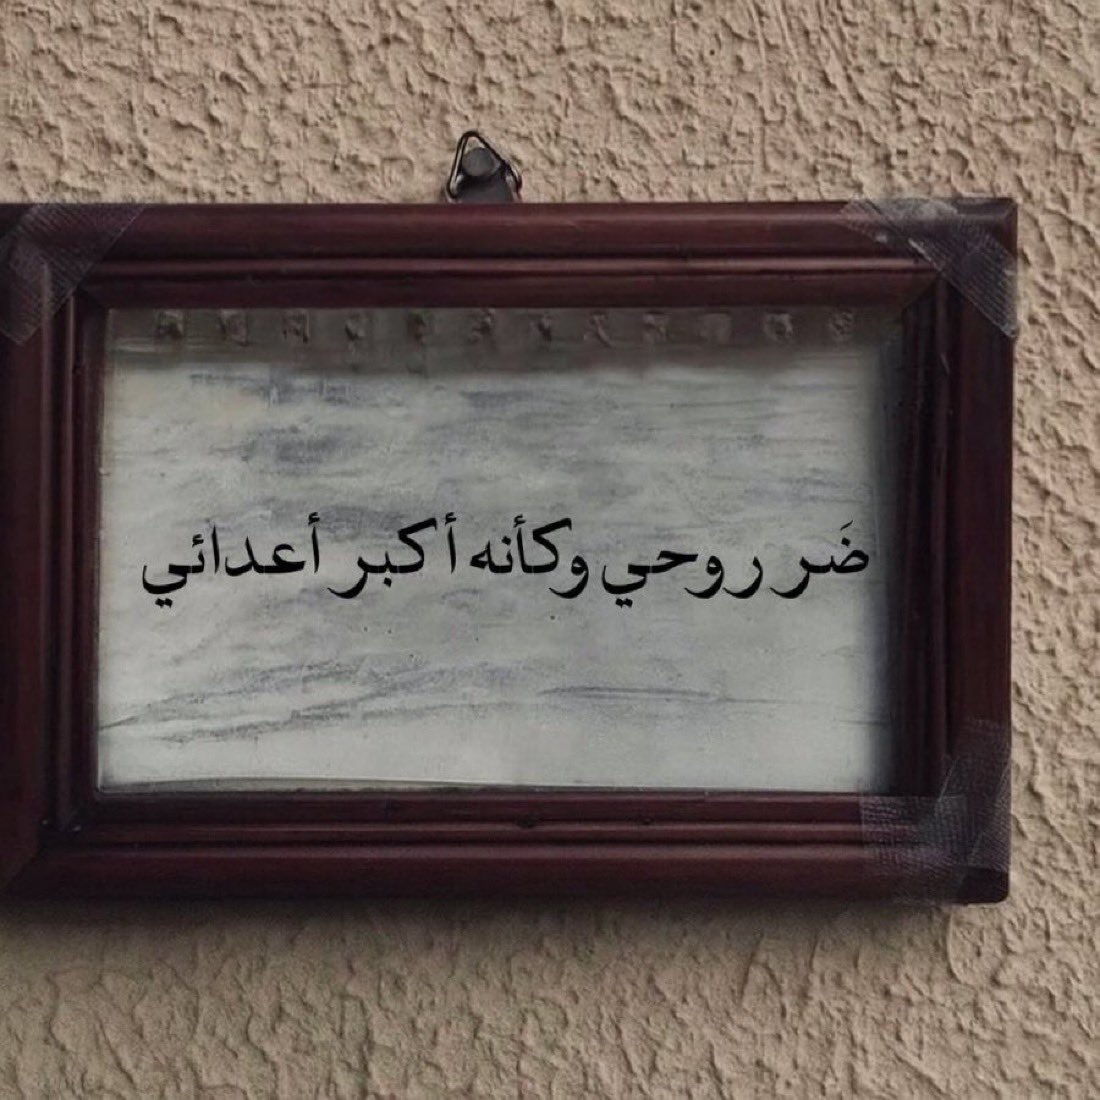 ضَر روحي وكأنه أكبر أعدائي